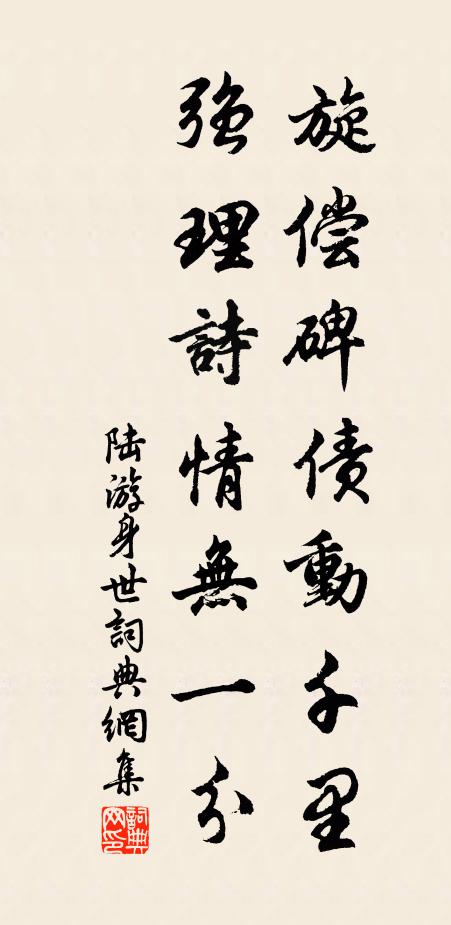 旋偿碑债動千里
强理詩情無一分
陆游身世詞典網集
詞典网印